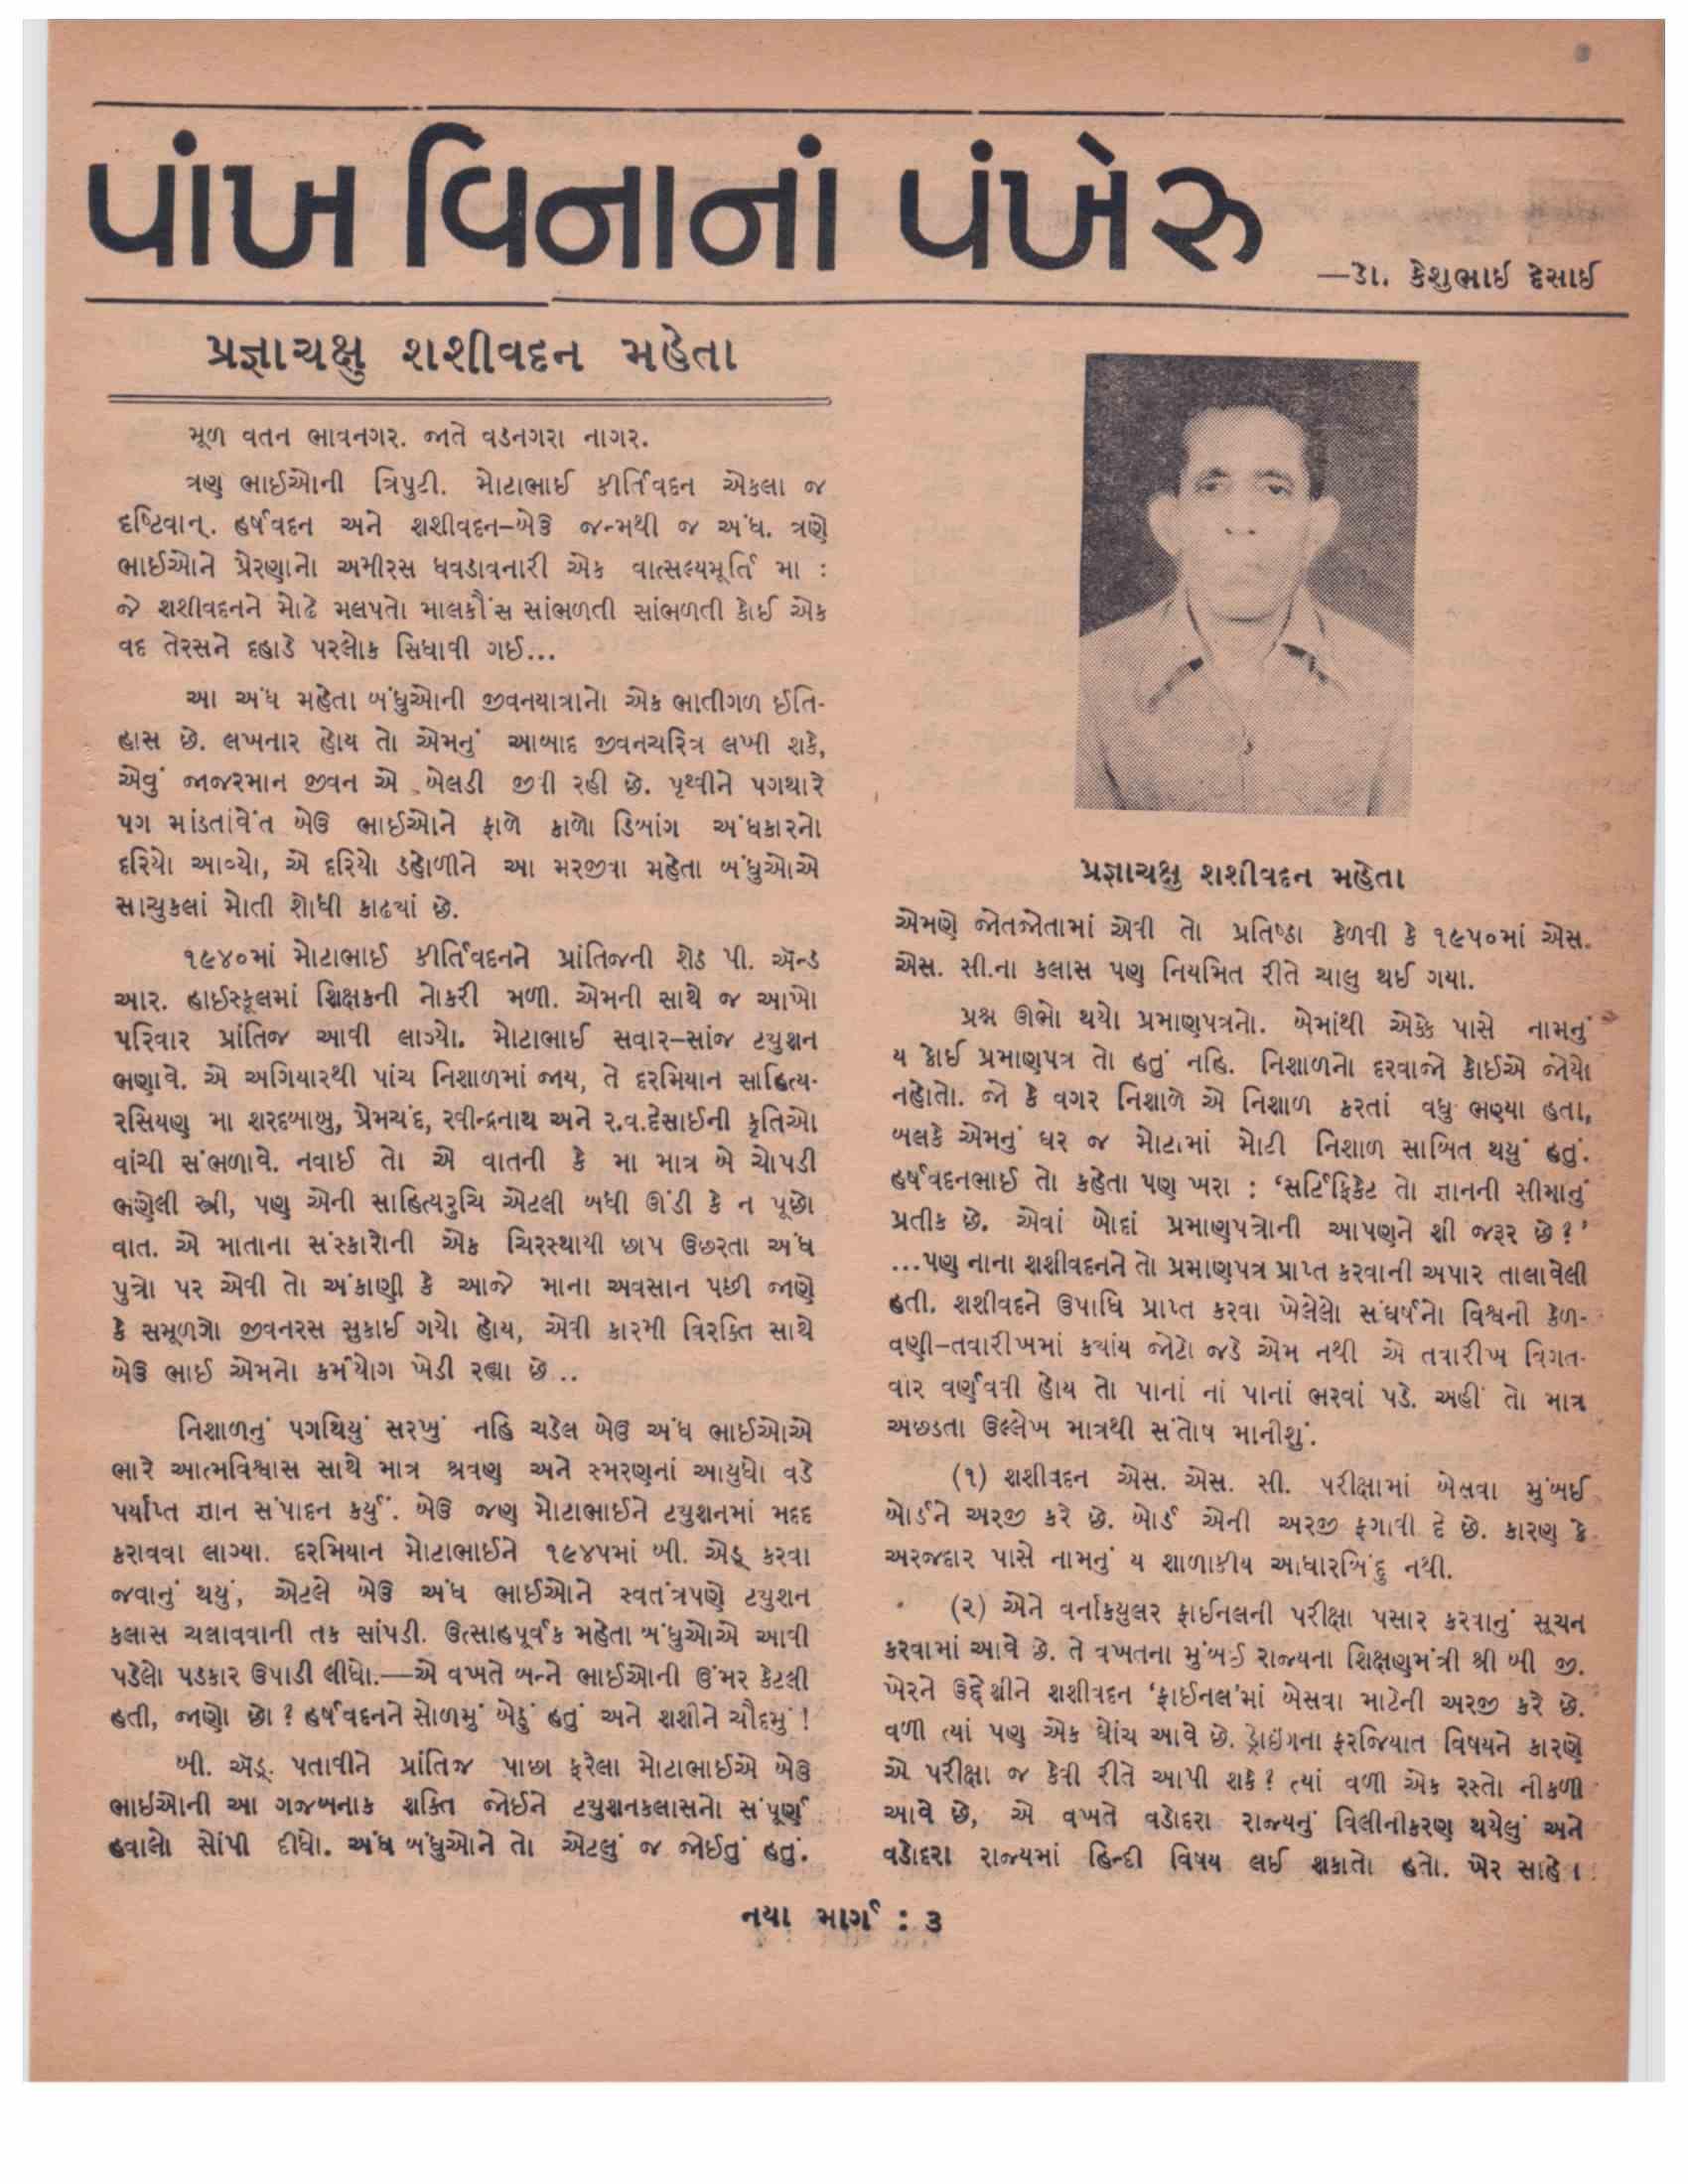 પાંખ વિનાનાં પંખેરુ
—ડૉ. કેશુભાઈ દેસાઈ
પ્રજ્ઞાચક્ષુ શશીવદન મહેતા
મૂળ વતન ભાવનગર. જાતે વડનગરા નાગર.
ત્રણ ભાઈઓની ત્રિપુટી. મોટાભાઈ કીર્તિવદન એકલા જ
દૃષ્ટિવાન્. હર્ષવદન અને શશીવદન–બેઉ જન્મથી જ અંધ. ત્રણે
ભાઈઓને પ્રેરણાનો અમીરસ ધવડાવનારી એક વાત્સલ્યમૂર્તિ મા :
જે શશીવદનને મોઢે મલપતો માલકૌંસ સાંભળતી સાંભળતી કોઈ એક
વદ તેરસને દહાડે પરલોક સિધાવી ગઈ...
આ અંધ મહેતા બંધુઓની જીવનયાત્રાનો એક ભાતીગળ ઈતિ-
હાસ છે. લખનાર હોય તો એમનું આબાદ જીવનચરિત્ર લખી શકે,
એવું જાજરમાન જીવન એ બેલડી જીવી રહી છે. પૃથ્વીને પગથારે
પગ માંડતાંવેંત બેઉ ભાઈઓને ફાળે કાળો ડિબાંગ અંધકારનો
દરિયો આવ્યો, એ દરિયો ડહોળીને આ મરજીવા મહેતા બંધુઓએ
સાચુકલાં મોતી શોધી કાઢયાં છે.
૧૯૪૦માં મોટાભાઈ કીર્તિવદનને પ્રાંતિજની શેઠ પી. ઍન્ડ
આર. હાઈસ્કૂલમાં શિક્ષકની નોકરી મળી. એમની સાથે જ આખો
પરિવાર પ્રાંતિજ આવી લાગ્યો. મોટાભાઈ સવાર–સાંજ ટયુશન
ભણાવે. એ અગિયારથી પાંચ નિશાળમાં જાય, તે દરમિયાન સાહિત્ય-
રસિયણ મા શરદબાબુ, પ્રેમચંદ, રવીન્દ્રનાથ અને ર.વ.દેસાઈની કૃતિઓ
વાંચી સંભળાવે. નવાઈ તો એ વાતની કે મા માત્ર બે ચોપડી
ભણેલી સ્ત્રી, પણ એની સાહિત્યરુચિ એટલી બધી ઊંડી કે ન પૂછો
વાત. એ માતાના સંસ્કારોની એક ચિરસ્થાયી છાપ ઉછરતા અંધ
પુત્રો પર એવી તો અંકાણી કે આજે માના અવસાન પછી જાણે
કે સમૂળગો જીવનરસ સુકાઈ ગયો હોય, એવી કારમી વિરક્તિ સાથે
બેઉ ભાઈ એમનો કર્મયોગ ખેડી રહ્યા છે...
નિશાળનું પગથિયું સરખું નહિ ચડેલ બેઉ અંધ ભાઈઓએ
ભારે આત્મવિશ્વાસ સાથે માત્ર શ્રવણ અને સ્મરણનાં આયુધો વડે
પર્યાપ્ત જ્ઞાન સંપાદન કર્યું. બેઉ જણ મોટાભાઈને ટયુશનમાં મદદ
કરાવવા લાગ્યા. દરમિયાન મોટાભાઈને ૧૯૪૫માં બી. એડ્ કરવા
જવાનું થયું, એટલે બેઉ અંધ ભાઈઓને સ્વતંત્રપણે ટયુશન
કલાસ ચલાવવાની તક સાંપડી. ઉત્સાહપૂર્વક મહેતા બંધુઓએ આવી
પડેલો પડકાર ઉપાડી લીધો.—એ વખતે બન્ને ભાઈઓની ઉંમર કેટલી
હતી, જાણો છો ? હર્ષવદનને સોળમું બેઠું હતું અને શશીને ચૌદમું !
બી. ઍડ્. પતાવીને પ્રાંતિજ પાછા ફરેલા મોટાભાઈએ બેઉ
ભાઈઓની આ ગજબનાક શક્તિ જોઈને ટયુશનકલાસનો સંપૂર્ણ
હવાલો સોંપી દીધો. અંધ બંધુઓને તો એટલું જ જોઈતું હતું.
પ્રજ્ઞાચક્ષુ શશીવદન મહેતા
એમણે જોતજોતામાં એવી તો પ્રતિષ્ઠા કેળવી કે ૧૯૫૦માં એસ.
એસ. સી.ના કલાસ પણ નિયમિત રીતે ચાલુ થઈ ગયા.
પ્રશ્ન ઊભો થયો પ્રમાણપત્રનો. બેમાંથી એકે પાસે નામનું
ય કોઈ પ્રમાણપત્ર તો હતું નહિ. નિશાળનો દરવાજો કોઈએ જોયો
નહોતો. જો કે વગર નિશાળે એ નિશાળ કરતાં વધુ ભણ્યા હતા,
બલકે એમનું ઘર જ મોટામાં મોટી નિશાળ સાબિત થયું હતું.
હર્ષવદનભાઈ તો કહેતા પણ ખરા : ‘સર્ટિફિકેટ તો જ્ઞાનની સીમાનું
પ્રતીક છે. એવાં બોદાં પ્રમાણપત્રોની આપણને શી જરૂર છે?’
...પણ નાના શશીવદનને તો પ્રમાણપત્ર પ્રાપ્ત કરવાની અપાર તાલાવેલી
હતી. શશીવદને ઉપાધિ પ્રાપ્ત કરવા ખેલેલો સંઘર્ષનો વિશ્વની કેળ-
વણી–તવારીખમાં કયાંય જોટો જડે એમ નથી એ તવારીખ વિગત-
વાર વર્ણવવી હોય તો પાનાં નાં પાનાં ભરવાં પડે. અહીં તો માત્ર
અછડતા ઉલ્લેખ માત્રથી સંતોષ માનીશું.
(૧) શશીવદન એસ. એસ. સી. પરીક્ષામાં બેસવા મુંબઈ
બોર્ડને અરજી કરે છે. બોર્ડ એની અરજી ફગાવી દે છે. કારણ કે
અરજદાર પાસે નામનું ય શાળાકીય આધારબિંદુ નથી.
(૨) એને વર્નાકયુલર ફાઈનલની પરીક્ષા પસાર કરવાનું સૂચન
કરવામાં આવે છે. તે વખતના મુંબઈ રાજ્યના શિક્ષણમંત્રી શ્રી બી જી.
ખેરને ઉદ્દેશીને શશીવદન ‘ફાઈનલ’માં બેસવા માટેની અરજી કરે છે.
વળી ત્યાં પણ એક ઘોંચ આવે છે. ડ્રોઇંગના ફરજિયાત વિષયને કારણે
એ પરીક્ષા જ કેવી રીતે આપી શકે? ત્યાં વળી એક રસ્તો નીકળી
આવે છે, એ વખતે વડોદરા રાજ્યનું વિલીનીકરણ થયેલું અને
વડોદરા રાજ્યમાં હિન્દી વિષય લઈ શકાતો હતો. ખેર
નયા માર્ગ : ૩